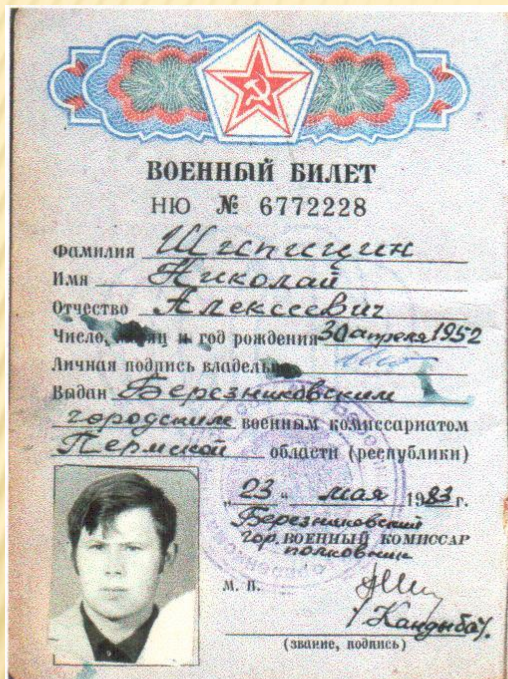 ВОЕННЫЙ БИЛЕТ
НЮ № 6772228
Фамилия Шипицин
Имя Николай
Отчество Алексеевич
Число, месяц и год рождения 30 апреля 1952
Личная подпись владельца
Выдан Березниковским
городским военным комиссариатом
Пермской области (республики)
„23“ мая 1983 г.
Березниковский
гор. ВОЕННЫЙ КОМИССАР
полковник
М. П.
/Кандыба/.
(звание, подпись)